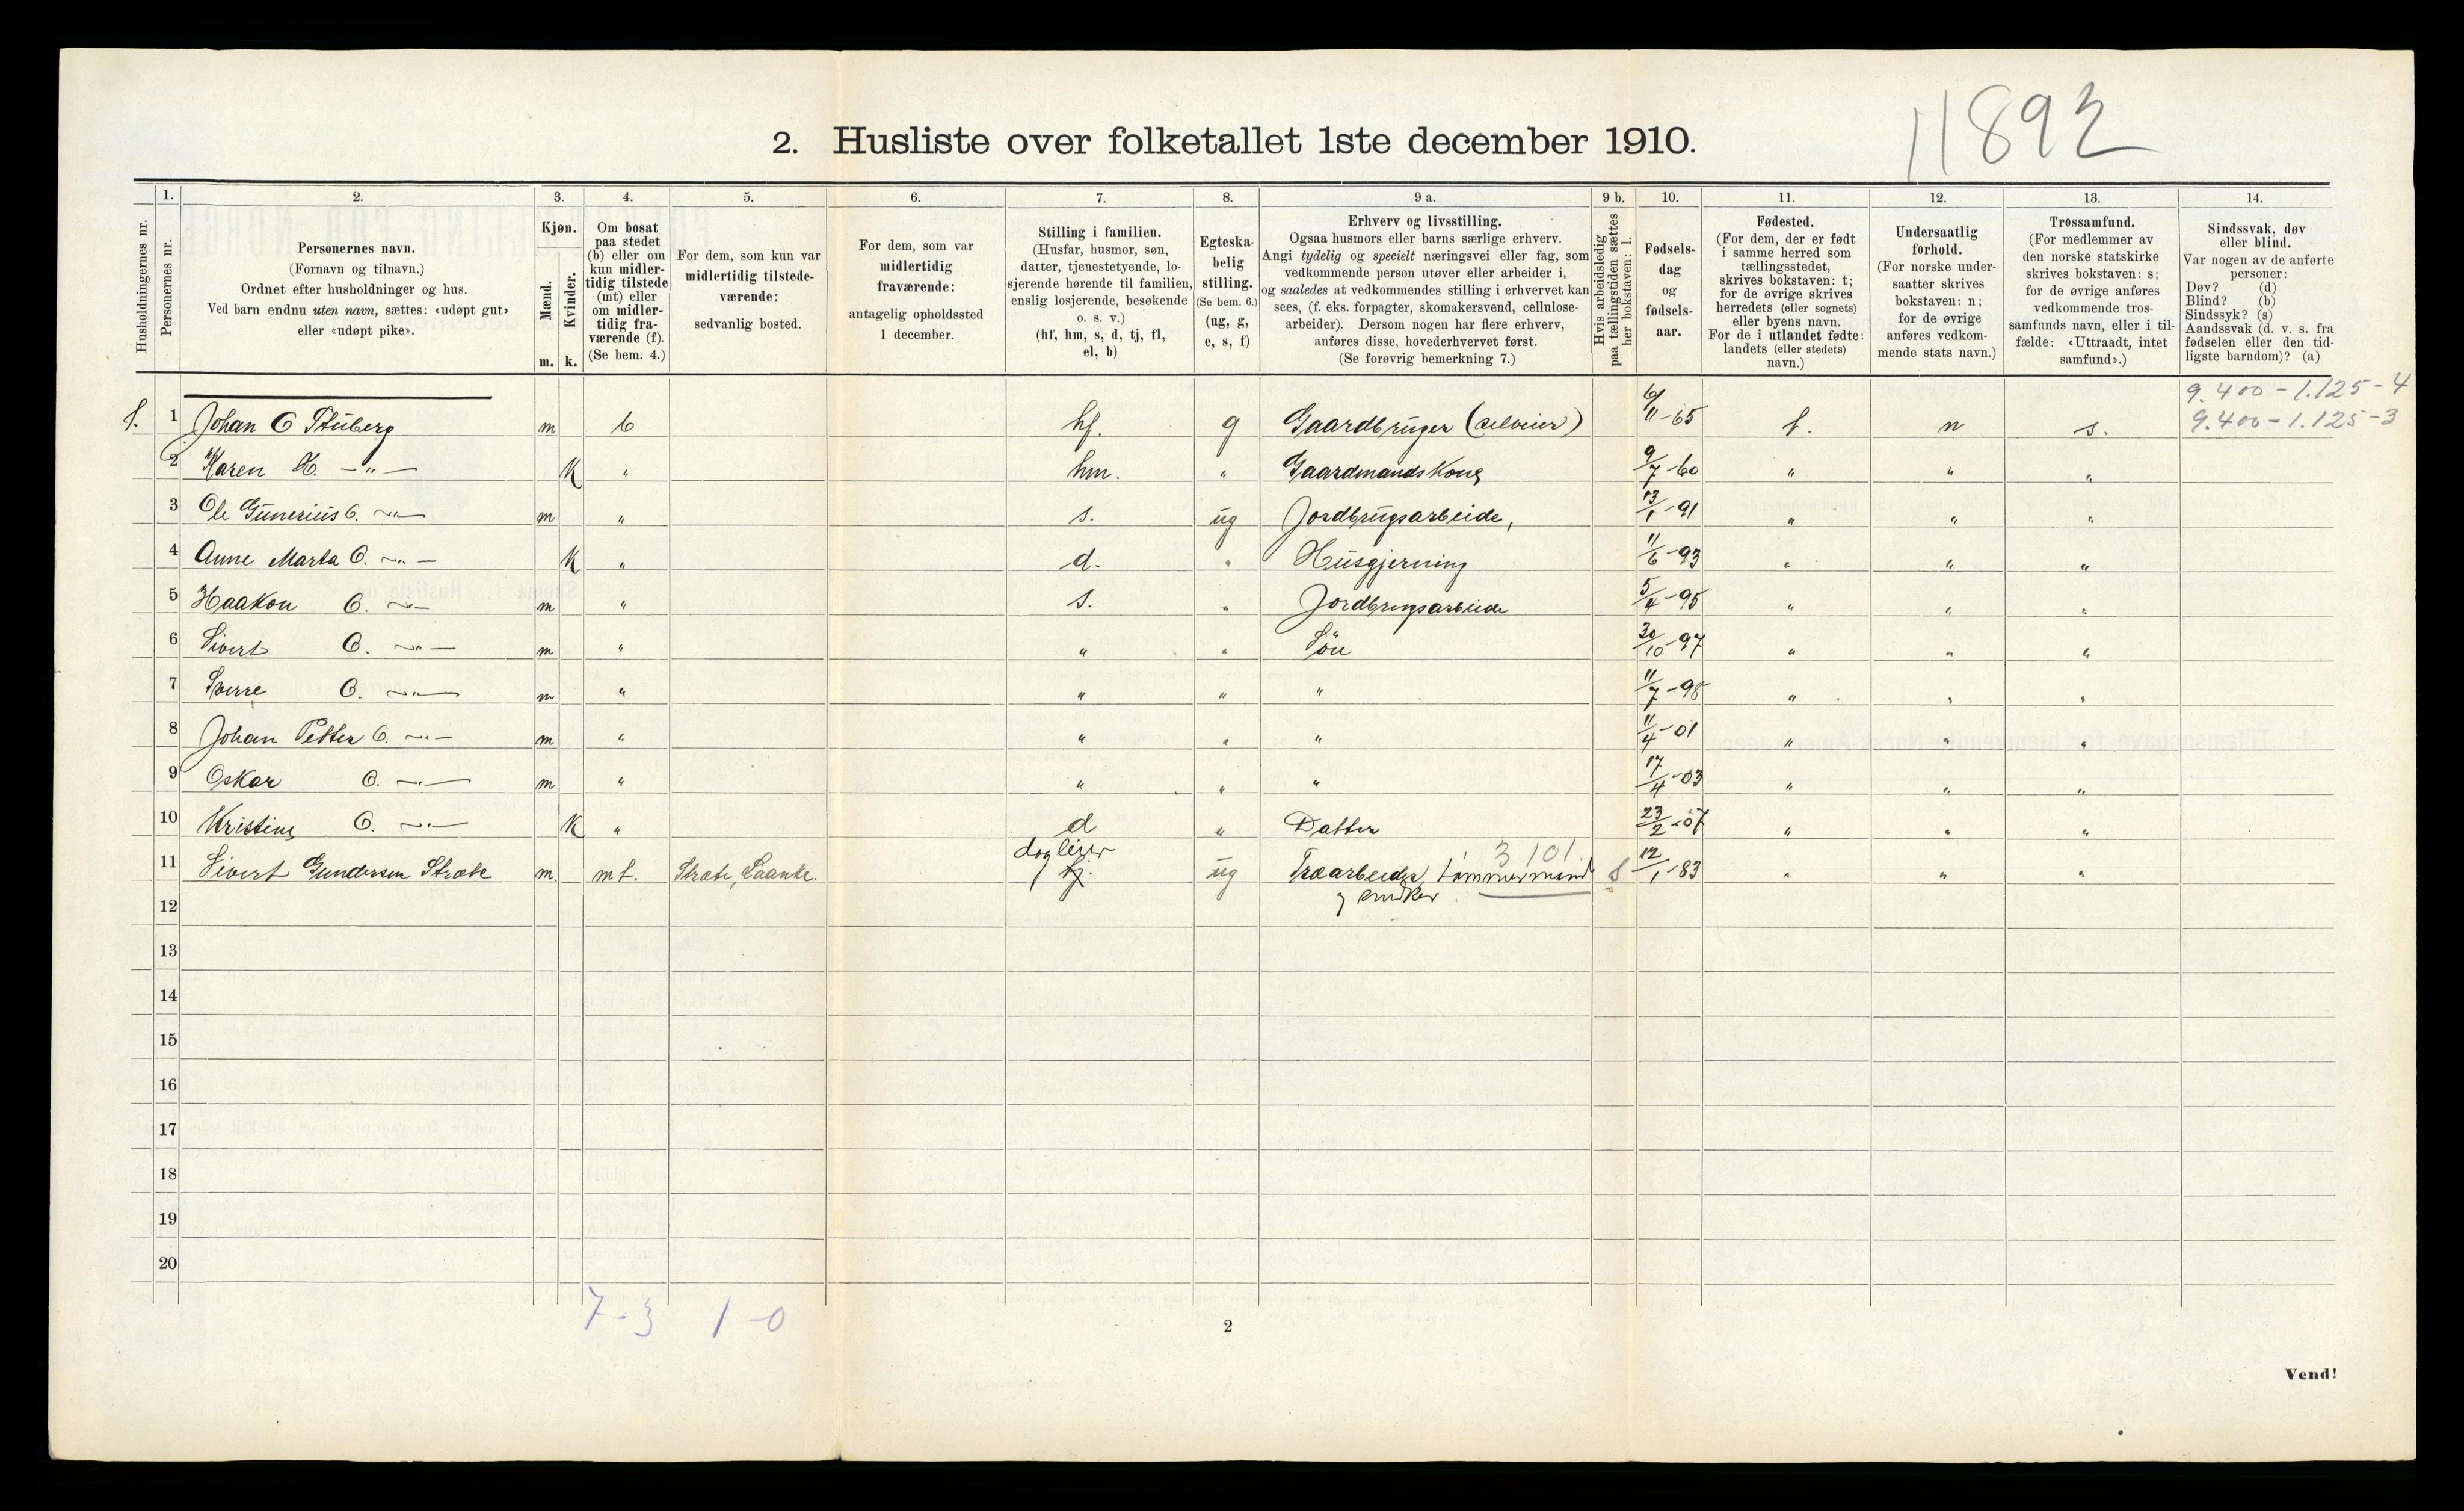 11892
2. Husliste over folketallet 1ste december 1910.
Husholdningernes nr.
1. Personernes nr.
2. Personernes navn.
(Fornavn og tilnavn.)
Ordnet efter husholdninger og hus.
Ved barn endnu uten navn, sættes: «udøpt gut»
eller «udøpt pike».
3. Kjøn.
Mænd. m.
Kvinder. k.
4. Om bosat
paa stedet
(b) eller om
kun midler-
tidig tilstede
(mt) eller
om midler-
tidig fra-
værende (f).
(Se bem. 4.)
5. For dem, som kun var
midlertidig tilstede-
værende:
sedvanlig bosted.
6. For dem, som var
midlertidig
fraværende:
antagelig opholdssted
1 december.
7. Stilling i familien.
(Husfar, husmor, søn,
datter, tjenestetyende, lo-
sjerende hørende til familien,
enslig losjerende, besøkende
o. s. v.)
(hf, hm, s, d, tj, fl,
el, b)
8. Egteska-
belig
stilling.
(Se bem. 6.)
(ug, g,
e, s, f)
9 a. Erhverv og livsstilling.
Ogsaa husmors eller barns særlige erhverv.
Angi tydelig og specielt næringsvei eller fag, som
vedkommende person utøver eller arbeider i,
og saaledes at vedkommendes stilling i erhvervet kan
sees, (f. eks. forpagter, skomakersvend, cellulose-
arbeider). Dersom nogen har flere erhverv,
anføres disse, hovederhvervet først.
(Se forøvrig bemerkning 7.)
9 b. Hvis arbeidsledig
paa tællingstiden sættes
her bokstaven: l.
10. Fødsels-
dag
og
fødsels-
aar.
11. Fødested.
(For dem, der er født
i samme herred som
tællingsstedet,
skrives bokstaven: t;
for de øvrige skrives
herredets (eller sognets)
eller byens navn.
For de i utlandet fødte:
landets (eller stedets)
navn.)
12. Undersaatlig
forhold.
(For norske under-
saatter skrives
bokstaven: n;
for de øvrige
anføres vedkom-
mende stats navn.)
13. Trossamfund.
(For medlemmer av
den norske statskirke
skrives bokstaven: s;
for de øvrige anføres
vedkommende tros-
samfunds navn, eller i til-
fælde: «Uttraadt, intet
samfund».)
14. Sindssvak, døv
eller blind.
Var nogen av de anførte
personer:
Døv? (d)
Blind? (b)
Sindssyk? (s)
Aandssvak (d. v. s. fra
fødselen eller den tid-
ligste barndom)? (a)
9.400-1.125-4
9.400-1.125-3
1. 1 Johan O Stuberg m b hf. g Gaardbruger (selveier) 6/11-65 t. n s.
2 Karen H. -"- K " hm. " Gaardmandskone 9/7-60 " " "
3 Ole Gunerius O. -"- m " s. ug Jordbrugsarbeide, 13/1-91 " " "
4 Anne Marta O. -"- K " d. " Husgjerning 11/6-93 " " "
5 Haakon O. -"- m " s. " Jordbrugsarbeide 5/4-95 " " "
6 Sivert O. -"- m " " " Søn 30/10-97 " " "
7 Sverre O. -"- m " " " " 11/7-98 " " "
8 Johan Petter O. -"- m " " " " 11/4-01 " " "
9 Oskar O. -"- m " " " " 17/4-03 " " "
10 Kristine O. -"- K " d " Datter 23/2-07 " " "
11 Sivert Gundersen Stræte m. mt. Stræte, Laanke. losjer ug Træarbeider, tømmermand 3101 12/1-83 " " "
og snidker
12
13
14
15
16
17
18
19
20
7-3 1-0
2
Vend!